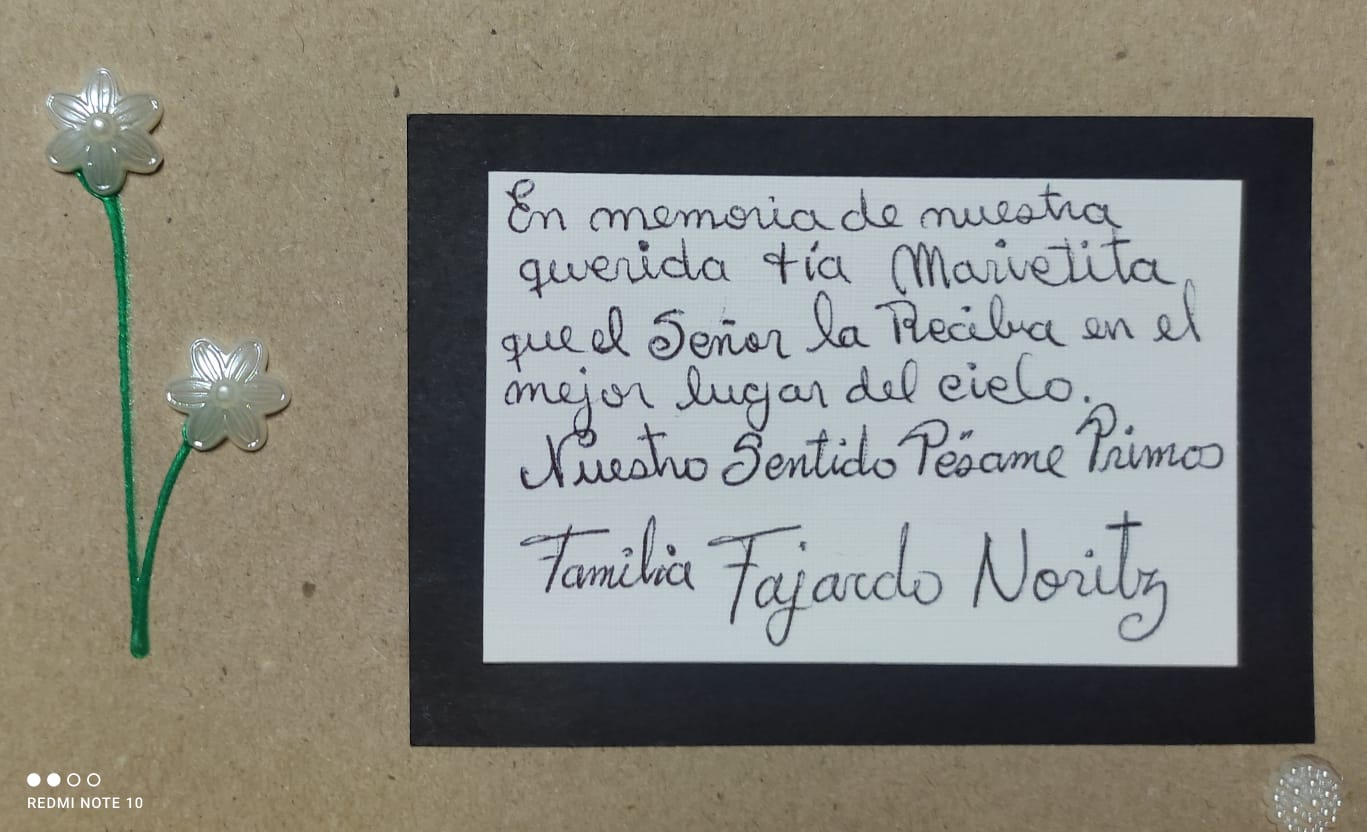 En memoria de nuestra
querida tía Marietita
que el Señor la Reciba en el
mejor lugar del cielo.
Nuestro Sentido Pésame Primos
Familia Fajardo Noritz
REDMI NOTE 10